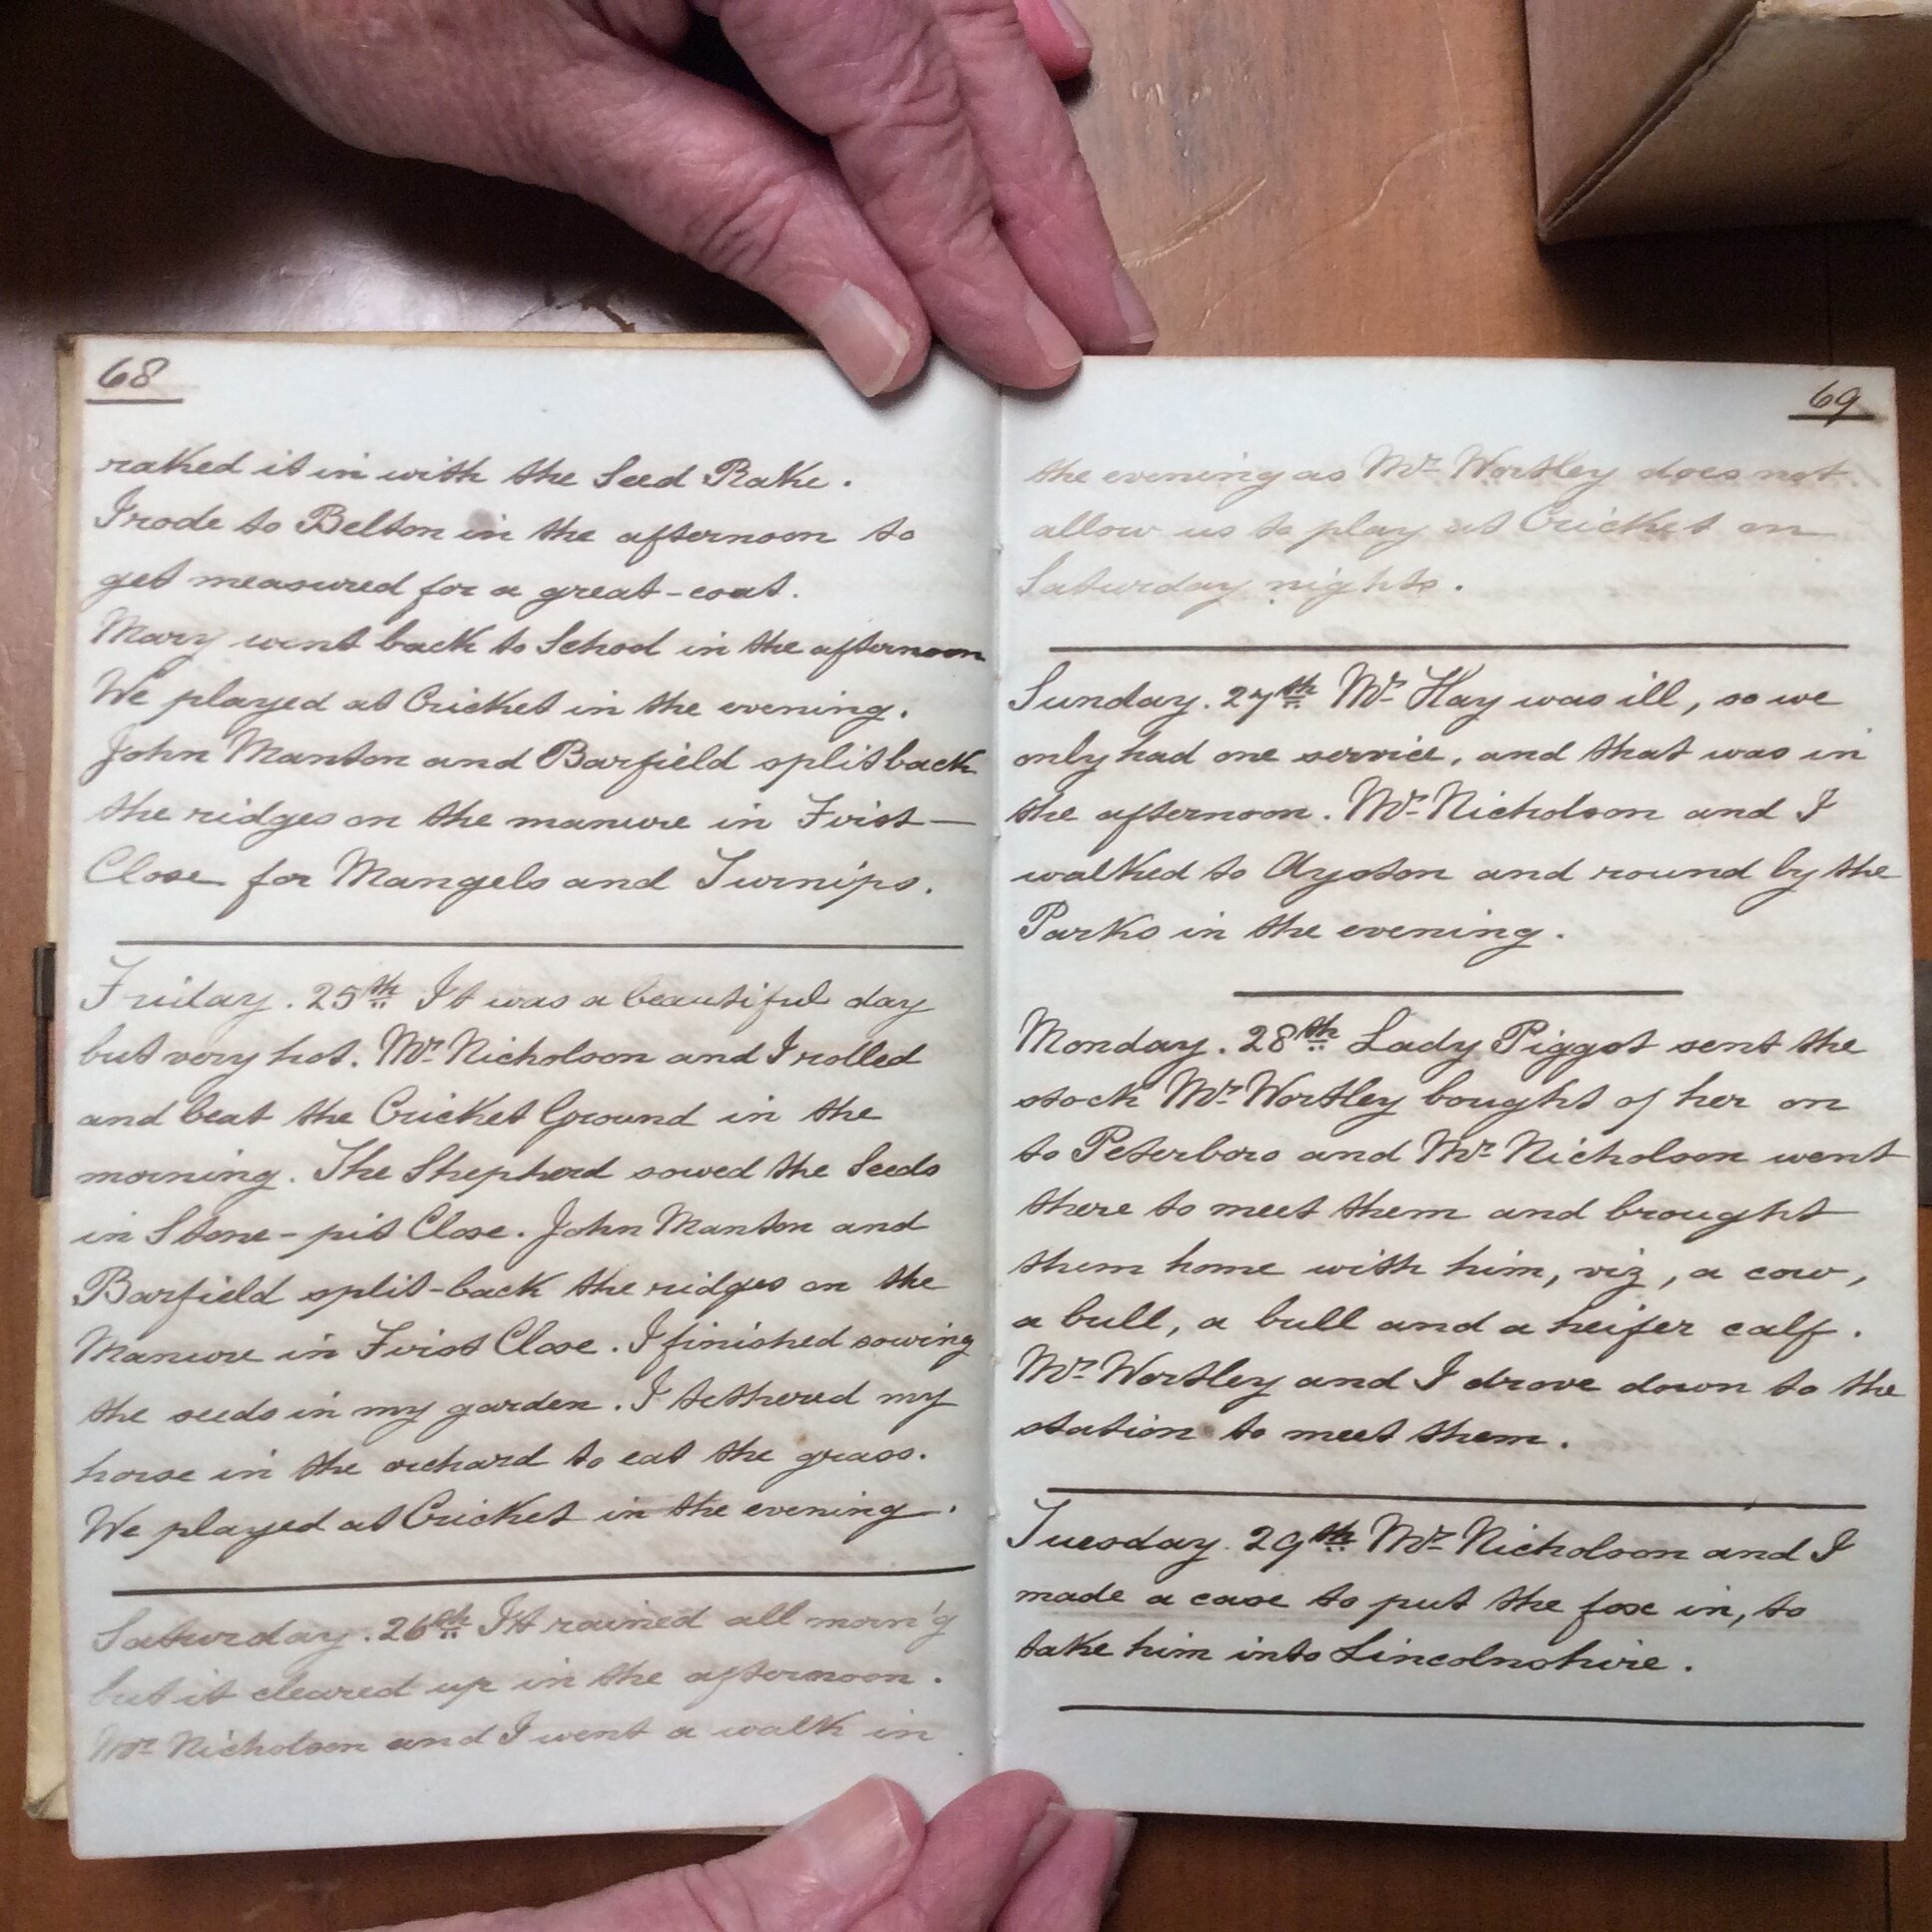 68
raked it in with the Seed Rake.
I rode to Belton in the afternoon to
get measured for a great-coat.
Mary went back to School in the afternoon
We played at Cricket in the evening.
John Manton and Barfield split back
the ridges on the manure in First-
Close for Mangels and Turnips.
Friday. 25th It was a beautiful day
but very hot. Mr. Nicholson and I rolled
and beat the Cricket Ground in the
morning. The Shepherd sowed the Seeds
in Stone-pit Close. John Manton and
Barfield split-back the ridges on the
Manure in First Close. I finished sowing
the seeds in my garden. I tethered my
horse in the orchard to eat the grass.
We played at Cricket in the evening.
Saturday. 26th It rained all morn'g
but it cleared up in the afternoon.
Mr. Nicholson and I went a walk in
69
the evening as Mr. Wortley does not
allow us to play at Cricket on
Saturday nights.
Sunday. 27th Mr. Hay was ill, so we
only had one service, and that was in
the afternoon. Mr. Nicholson and I
walked to Ayston and round by the
Parks in the evening.
Monday. 28th Lady Piggot sent the
stock Mr. Wortley bought of her on
to Peterboro and Mr. Nicholson went
there to meet them and brought
them home with him, viz, a cow,
a bull, a bull and a heifer calf.
Mr. Wortley and I drove down to the
station to meet them.
Tuesday. 29th Mr. Nicholson and I
made a case to put the fox in, to
take him into Lincolnshire.